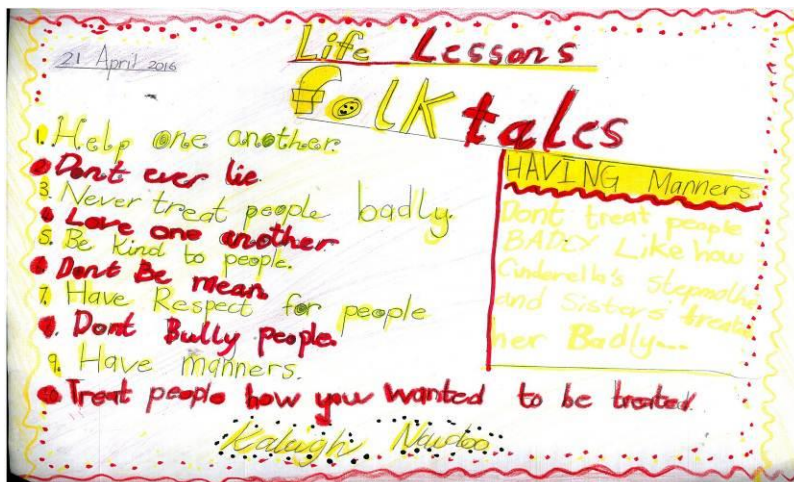 21 April 2016
Life Lessons
Folk tales
1. Help one another.
Dont ever lie
3. Never treat people badly.
Love one another
5. Be Kind to people.
Dont Be mean
7. Have Respect for people
8. Dont Bully people.
9. Have manners.
Treat people how you wanted to be treated
HAVING Manners
Dont treat people
BADLY Like how
Cinderella's Stepmother
and Sisters treated
her Badly...
Kaleigh Naidoo